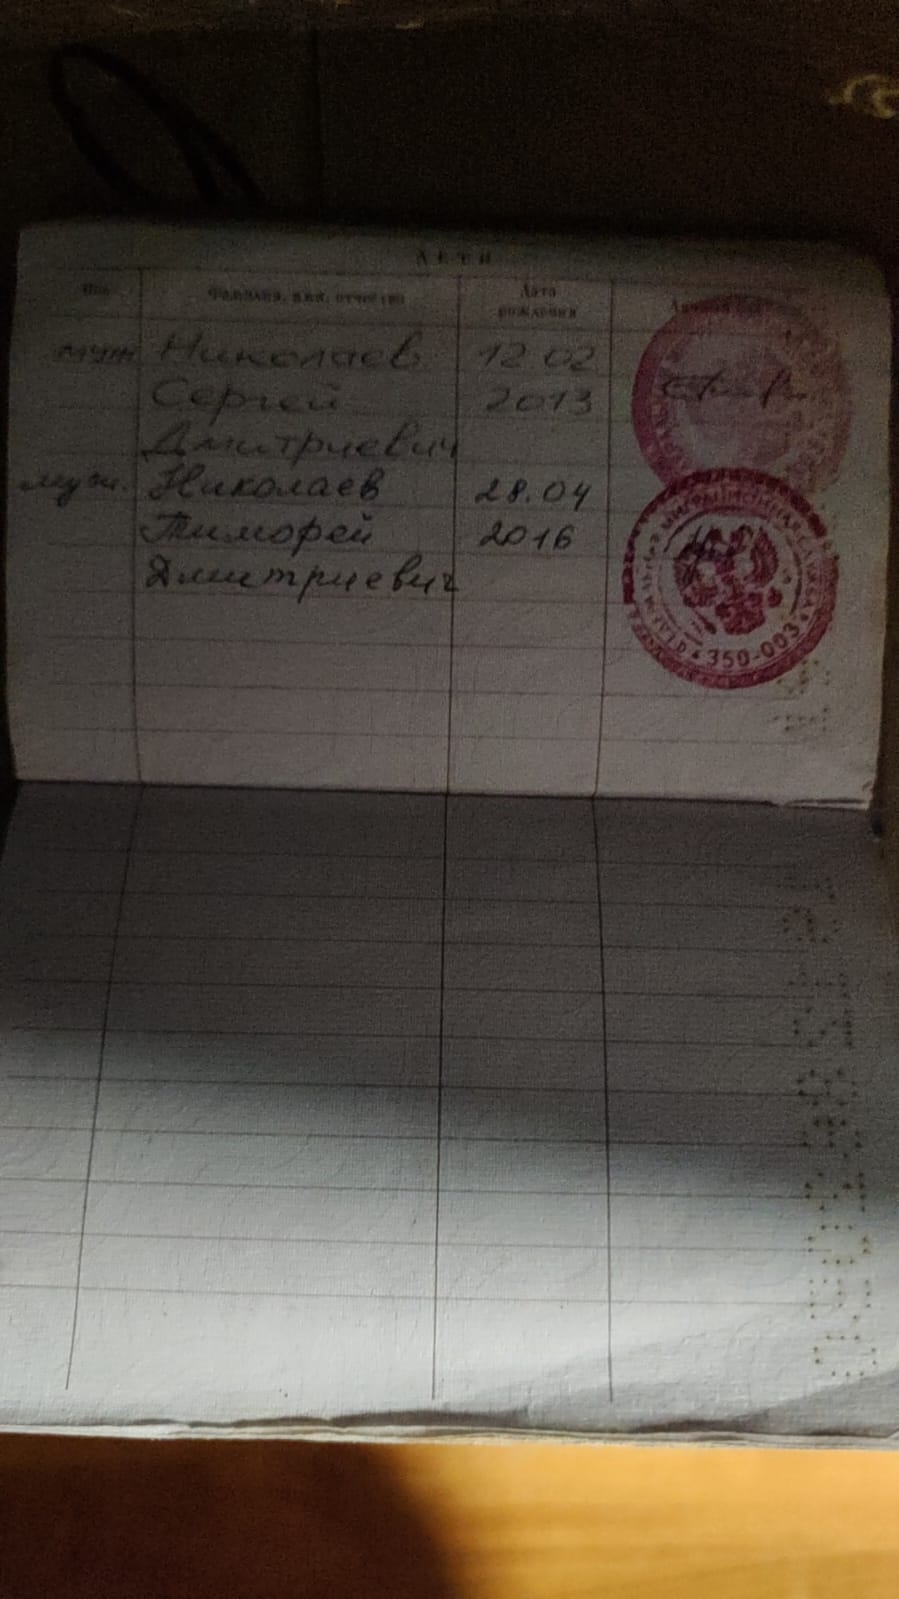 ДЕТИ
Пол Фамилия, имя, отчество Дата рождения Личный код
муж Николаев 12.02
Сергей 2013
Дмитриевич
муж. Николаев 28.04
Тимофей 2016
Дмитриевич
МИГРАЦИОННАЯ СЛУЖБА
350-003